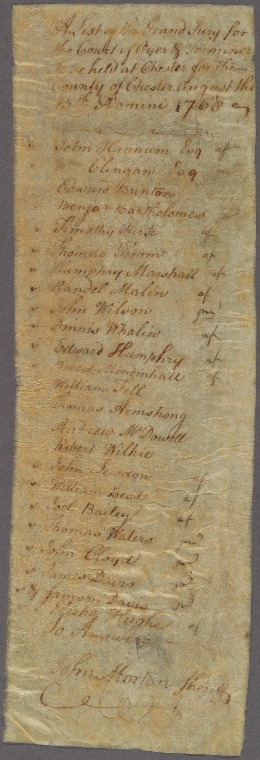 A List of the Grand Jury for
the Court of Oyer & Terminer
to be held at Chester for the
County of Chester August the
15th Domini 1768
John Hannum Esq af
Wm Clingan Esq
Edward Brinton
Benja Bartholomew jud
Timothy Kirk af
Thomas af
Humphry Marshall af
Randel Malin af
John Wilson jud
Ennis Whalin af
Edward Humphry af
Mendinhall af
William Fell
Thomas Armstrong
Andrew McDowell
Robert Wilkie
John af
William Read af
Joel Bailey af
Thomas Waters jud
John Cloyd jud
James Davis jud
Davis jud
Hughs af
So Answers
John Morton Sheriff